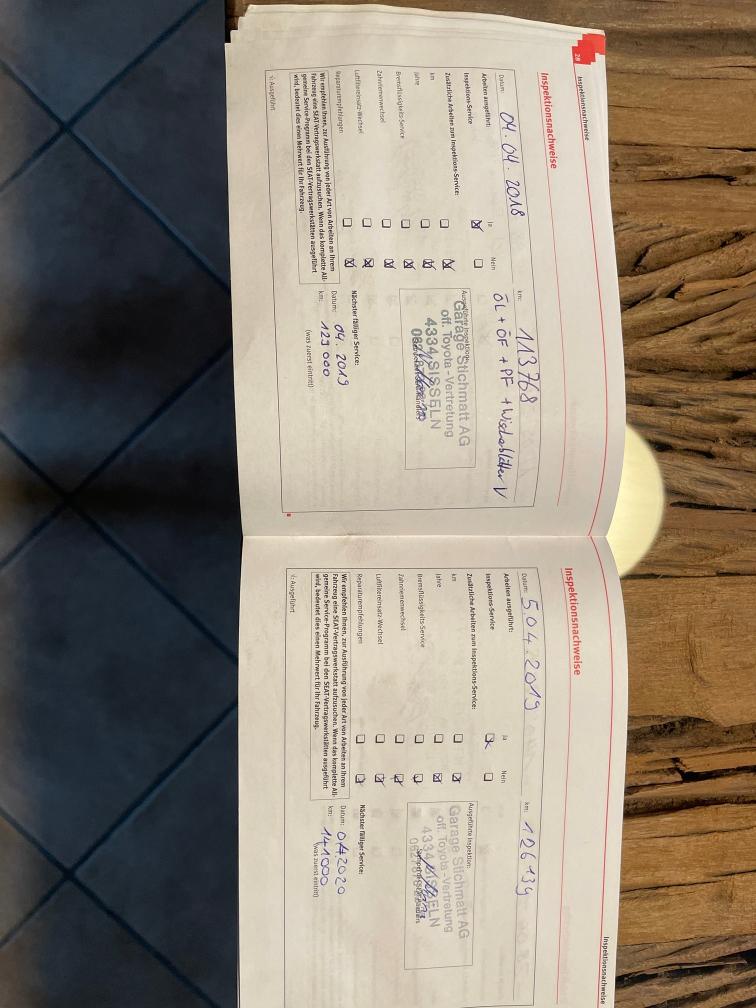 28
Inspektionsnachweise
Inspektionsnachweise
Datum: 04.04.2018
km: 113768
Arbeiten ausgeführt:
Ja
Nein
ÖL + ÖF + PF + Wischblätter V
Inspektions-Service
Zusätzliche Arbeiten zum Inspektions-Service:
Ausgeführte Inspektion:
km
Jahre
Bremsflüssigkeits-Service
Zahnriemenwechsel
Luftfiltereinsatz-Wechsel
Reparaturempfehlungen
Garage Stichmatt AG
off. Toyota-Vertretung
4334 SISSELN
Nächster fälliger Service:
Datum: 04. 2019
km: 129 000
(was zuerst eintritt)
Wir empfehlen Ihnen, zur Ausführung von jeder Art von Arbeiten an Ihrem
Fahrzeug eine SEAT-Vertragswerkstatt aufzusuchen. Wenn das komplette All-
gemeine Service-Programm bei den SEAT-Vertragswerkstätten ausgeführt
wird, bedeutet dies einen Mehrwert für Ihr Fahrzeug.
√: Ausgeführt
Inspektionsnachweise
Inspektionsnachweise
Datum: 5.04.2019
km: 126134
Arbeiten ausgeführt:
Ja
Nein
Inspektions-Service
Zusätzliche Arbeiten zum Inspektions-Service:
Ausgeführte Inspektion:
km
Jahre
Bremsflüssigkeits-Service
Zahnriemenwechsel
Luftfiltereinsatz-Wechsel
Reparaturempfehlungen
Garage Stichmatt AG
off. Toyota-Vertretung
4334 SISSELN
Nächster fälliger Service:
Datum: 04 2020
km: 141000
(was zuerst eintritt)
Wir empfehlen Ihnen, zur Ausführung von jeder Art von Arbeiten an Ihrem
Fahrzeug eine SEAT-Vertragswerkstatt aufzusuchen. Wenn das komplette All-
gemeine Service-Programm bei den SEAT-Vertragswerkstätten ausgeführt
wird, bedeutet dies einen Mehrwert für Ihr Fahrzeug.
√: Ausgeführt